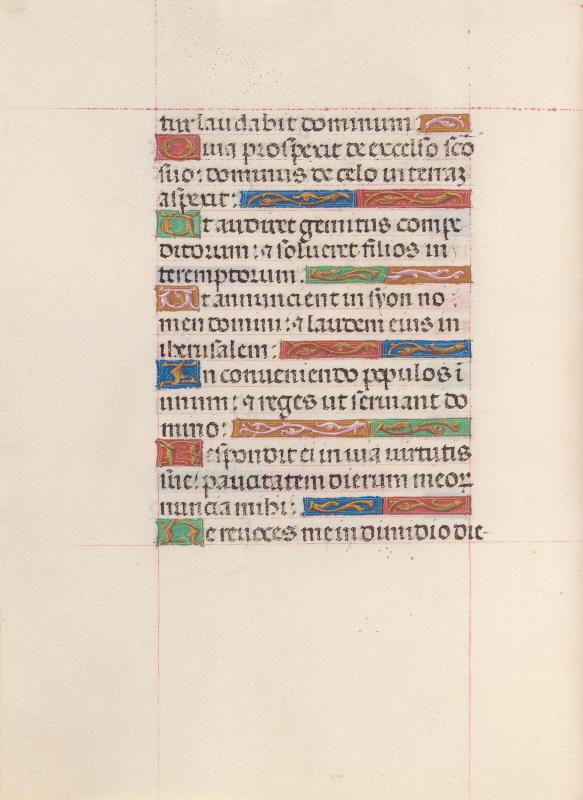 tur laudabit dominum:
Quia prosperit de excelso scō
suo: dominus de celo in terraȝ
asperit:
Ut audiret gemitus compe
ditorum: ⁊ solueret filios in
teremptorum.
Ut annuncient in syon no
men domini: ⁊ laudem eius in
iherusalem:
In conueniendo populos ī
unum: ⁊ reges ut seruiant do
mino:
Respondit ei in uia uirtutis
sue: paucitatem dierum meoꝝ
nuncia mihi:
Ne reuoces me in dimidio die